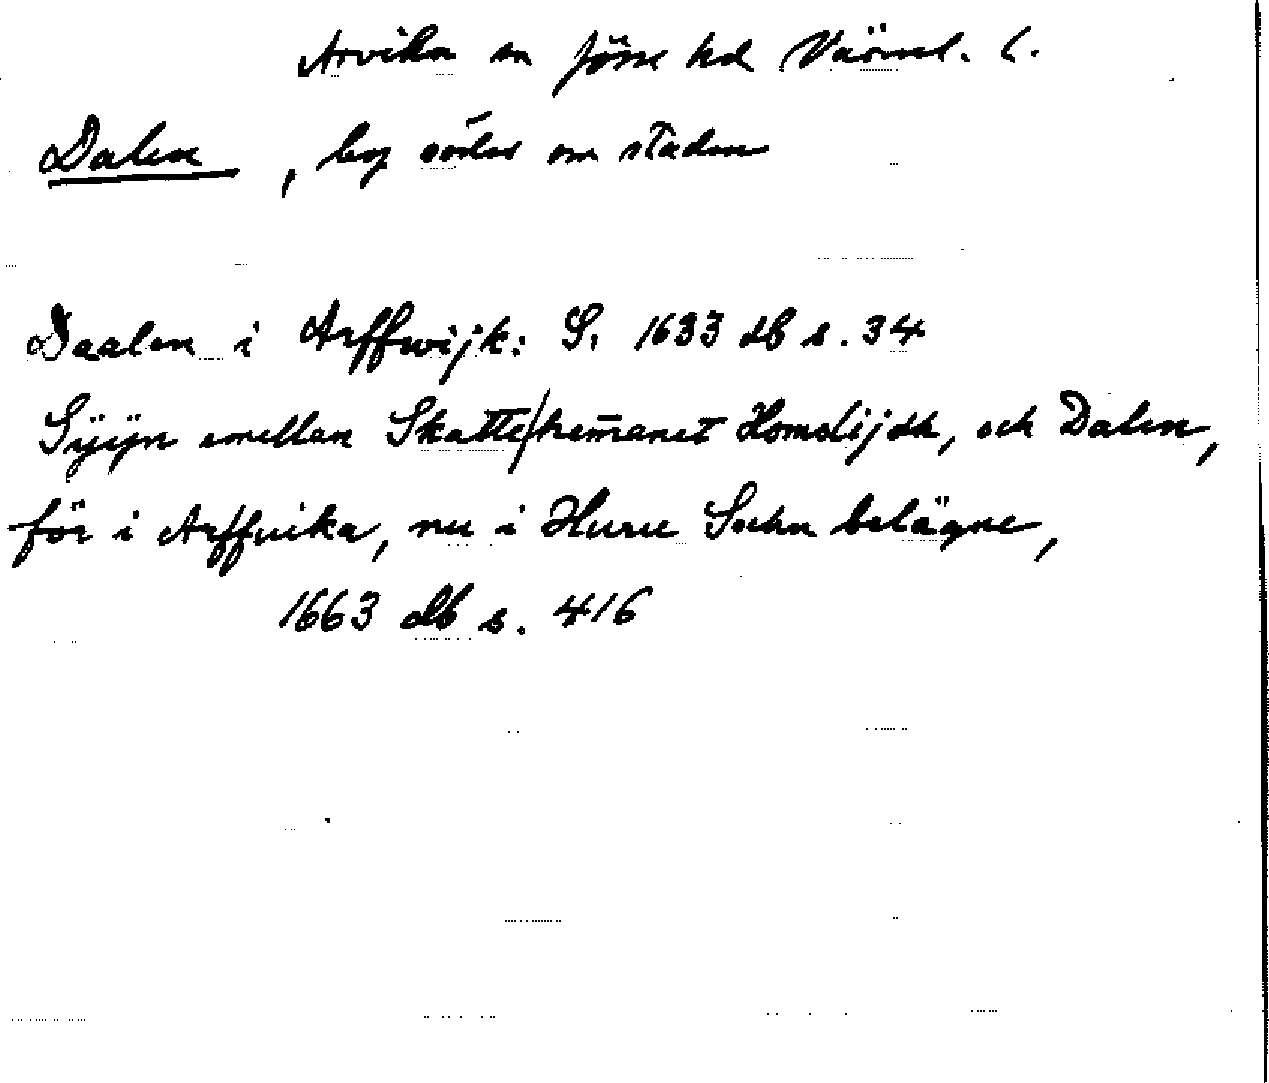 Arvika sn Jösse hd Värml. l.
Dalen, by söder om staden
Daalen i Arffwijk: S. 1633 db s. 34
Sÿÿn emellan Skatte/hem̄anet Homdijdh, och Dalen,
för i Arffuika, nu i Huru Sochn belägne,
1663 db s. 416